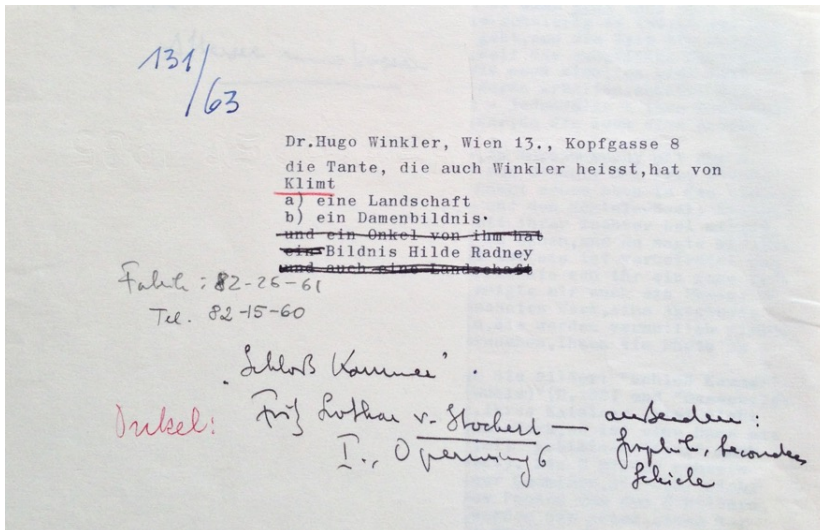 131/63
Dr.Hugo Winkler, Wien 13., Kopfgasse 8
die Tante, die auch Winkler heisst,hat von
Klimt
a) eine Landschaft
b) ein Damenbildnis.
und ein Onkel von ihm hat
ein Bildnis Hilde Radney
und auch eine Landschaft
: 82-26-61
Tel. 82-15-60
"Schloß Kammer".
Onkel: Fritz Lothar v. Stockert — außerdem:
I., Opernring 6 Graphik, besonders
Schiele